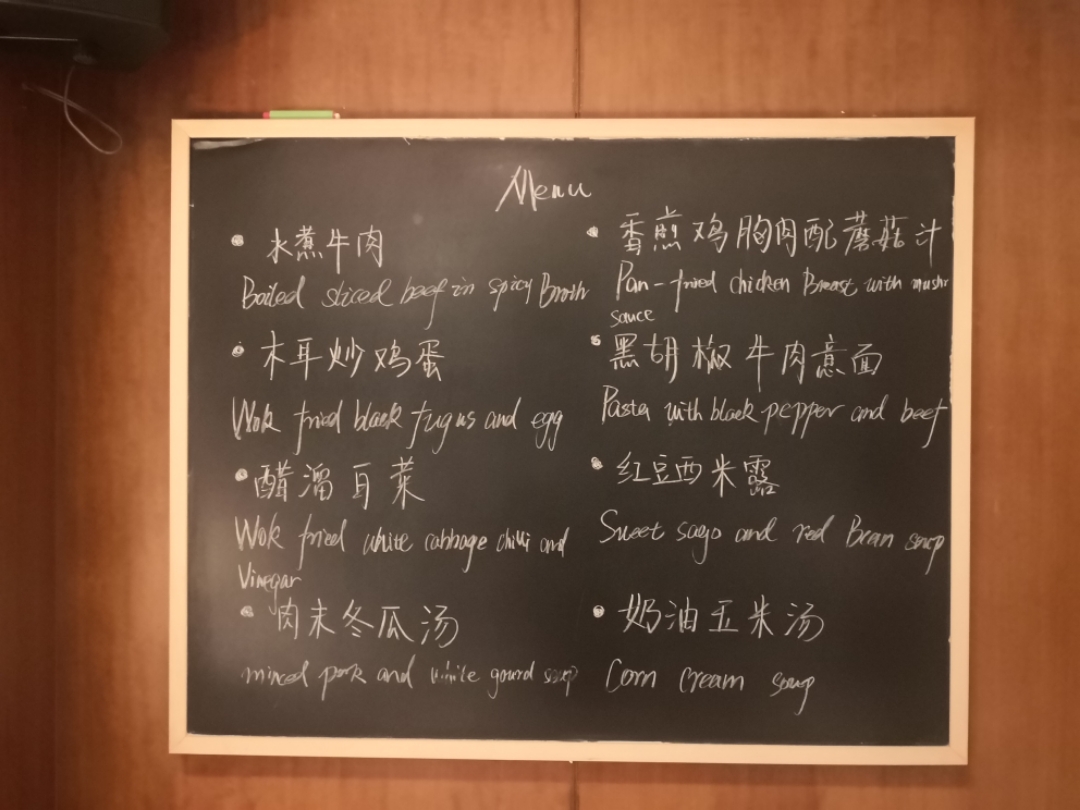 Menu
水煮牛肉
Boiled sliced beef in spicy Broth
木耳炒鸡蛋
Wok fried black fugus and egg
醋溜白菜
Wok fried white cabbage chilli and
Vinegar
肉末冬瓜汤
minced pork and white gourd soup
香煎鸡胸肉配蘑菇汁
Pan-fried chicken Breast with mushr
sauce
黑胡椒牛肉意面
Pasta with black pepper and beef
红豆西米露
Sweet sago and red Bean soup
奶油玉米汤
Corn cream soup